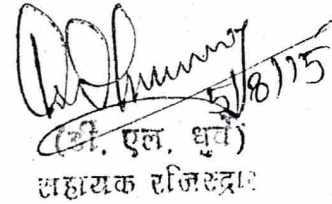 5/8/15
(डी. एल. धुर्वे)
सहायक रजिस्ट्रार